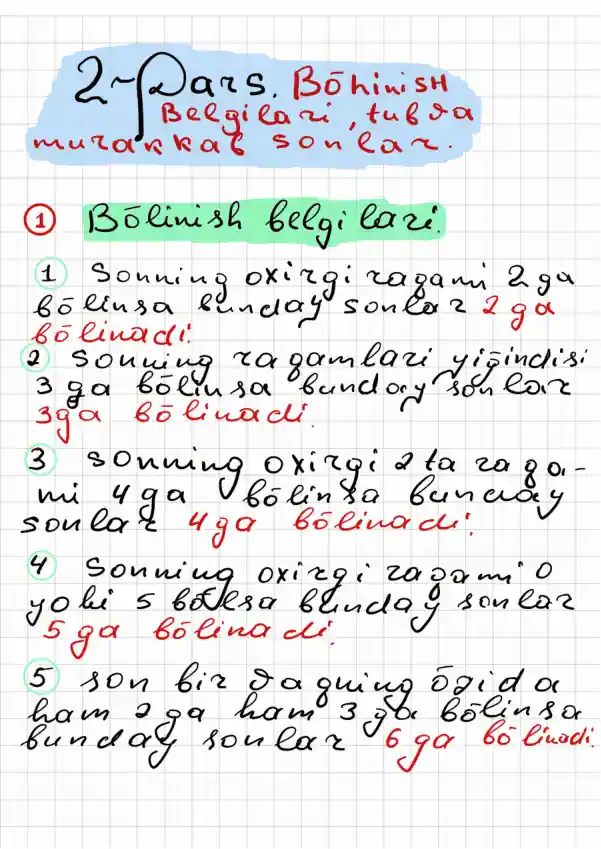 2-Dars. Bōhinish
Belgilari, tub va
murakkab sonlar.
1 Bōlinish belgilari.
1 Sonning oxirgi raqami 2 ga
bōlinsa bunday sonlar 2 ga
bōlinadi.
2 Sonning raqamlari yiğindisi
3 ga bōlinsa bunday sonlar
3ga bōlinadi.
3 Sonning oxirgi 2 ta raqa-
mi 4 ga bōlinsa bunday
sonlar 4 ga bōlinadi.
4 Sonning oxirgi raqami 0
yoki 5 bōlsa bunday sonlar
5 ga bōlinadi.
5 son bir vaqning ōzida
ham 2 ga ham 3 ga bōlinsa
bunday sonlar 6 ga bōlinadi.